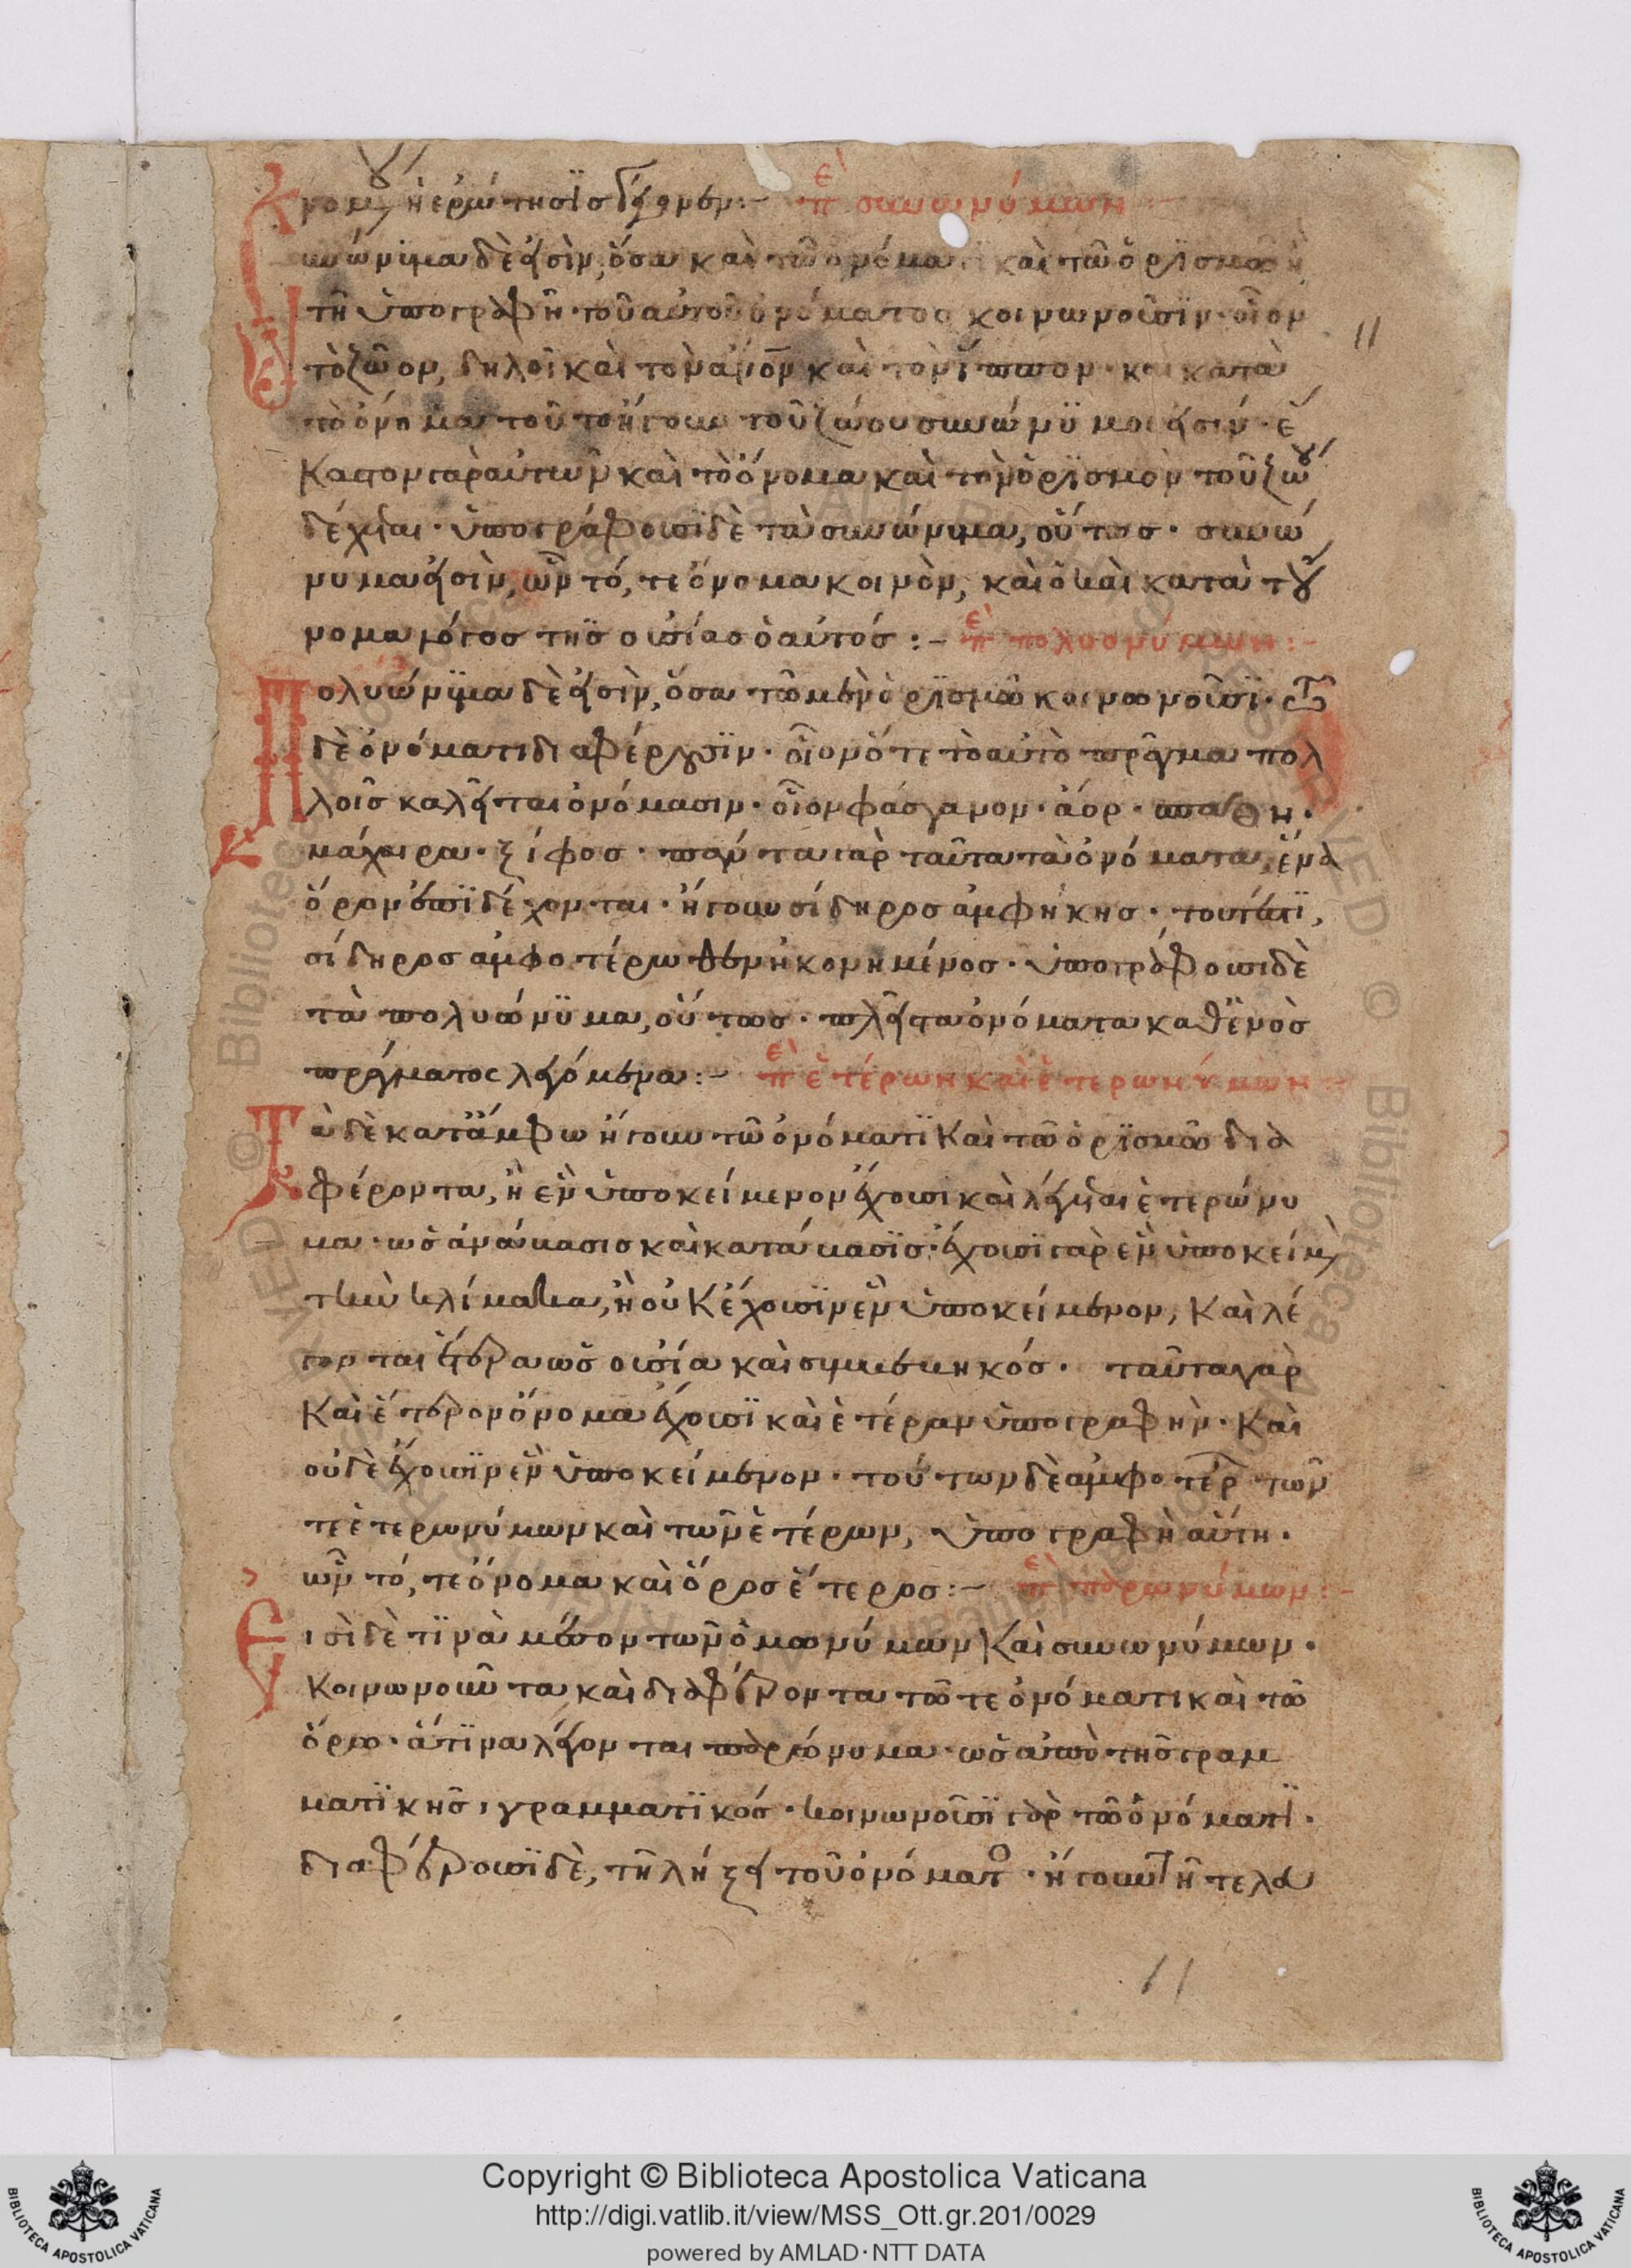 νομ ἡ ἐρώτησϊσ δέχομεν:– πε συνωνύμων:–
Συνώνϊμα δὲ εἰσὶν, ὅσα καὶ τῶ ὀνόματι καὶ τῶ ὁρϊσμῶ ἢ
τῆ ὑπογραφῆ τοῦ αὐτοῦ ὀνόματοσ κοινωνοῦσϊν· οἷον
τὸ ζῶον, δηλοῖ καὶ τὸν ἀνον καὶ τὸν ἵππον· καὶ κατὰ
τὸ ὄνομα τοῦτο ἤγουν τοῦ ζώου συνώνϋμοι εἰσίν· ἕ
καστον γὰρ αὐτῶν καὶ τὸ ὄνομα καὶ τὸν ὁρϊσμὸν τοῦ ζώου
δέχεται· ὑπογράφουσϊ δὲ τὰ συνώνιμα, οὕτωσ· συνώ
νυμα εἰσὶν, ὧν τό, τε ὄνομα κοινὸν, καὶ ὁ κατὰ τοὔ
νομα λόγοσ τῆσ οὐσίασ ὁ αὐτόσ:– πε πολυονύμων:–
Πολυώνϊμα δὲ εἰσὶν, ὅσα τῶ μὲν ὁρϊσμῶ κοινωνοῦσϊ· τῶ
δὲ ὀνόματι διαφέρουσϊν· οἷον ὅτε τὸ αὐτὸ πρᾶγμα πολ
λοῖσ καλεῖται ὀνόμασιν· οἷον φάσγανον· ἄορ· σπάθη·
μάχαιρα· ξίφοσ· πάντα γὰρ ταῦτα τὰ ὀνόματα, ἕνα
ὅρον ἐπϊδέχονται· ἤγουν σίδηροσ ἀμφήκησ· τουτέστϊ,
σίδηροσ ἀμφοτέρωθεν ἠκονημένοσ· ὑπογράφουσι δὲ
τὰ πολυώνϋμα, οὕτωσ· πλεῖστα ὀνόματα καθ ἑνὸσ
πράγματος λεγόμενα:– πε ἑτέρων καὶ ἑτερωνύμων:–
Τὰ δὲ κατ ἄμφω ἤγουν τῶ ὀνόματϊ καὶ τῶ ὁρϊσμῶ δια
φέροντα, ἢ ἓν ὑποκείμενον ἔχουσι καὶ λέγεται ἑτερώνυ
μα· ὡσ ἀνάβασισ καὶ κατάβασϊσ· ἔχουσϊ γὰρ ἓν ὑποκείμ
τὴν κλίμακα, ἢ οὐκ ἔχουσϊν ἓν ὑποκείμενον, καὶ λέ
γονται ἕτερα ὡσ οὐσία καὶ συμβεβηκόσ· ταῦτα γὰρ
καὶ ἕτερον ὄνομα ἔχουσϊ καὶ ἑτέραν ὑπογραφὴν· καὶ
οὐδὲ ἔχουσϊν ἓν ὑποκείμενον· τούτων δὲ ἀμφοτέρ τῶν
τε ἑτερωνύμων καὶ τῶν ἑτέρων, ὑπογραφὴ αὕτη·
ὧν τό, τε ὄνομα καὶ ὅροσ ἕτεροσ:– πε παρωνύμων:–
Εἰσὶ δὲ τϊνὰ μέσον τῶν ὁμωνύμων καὶ συνωνύμων·
κοινωνοῦντα καὶ διαφέροντα τῶ τε ὀνόματι καὶ τῶ
ὅρω· ἅτϊνα λέγονται παρώνυμα· ὡσ ἀπὸ τῆσ γραμ
ματϊκῆσ, γραμματϊκόσ· κοινωνοῦσϊ γὰρ τῶ ὀνόματϊ·
διαφέρουσϊ δὲ, τῆ λήξει τοῦ ὀνόματο· ἤγουν τῆ τελευ
11
11
Copyright © Biblioteca Apostolica Vaticana
http://digi.vatlib.it/view/MSS_Ott.gr.201/0029
powered by AMLAD·NTT DATA